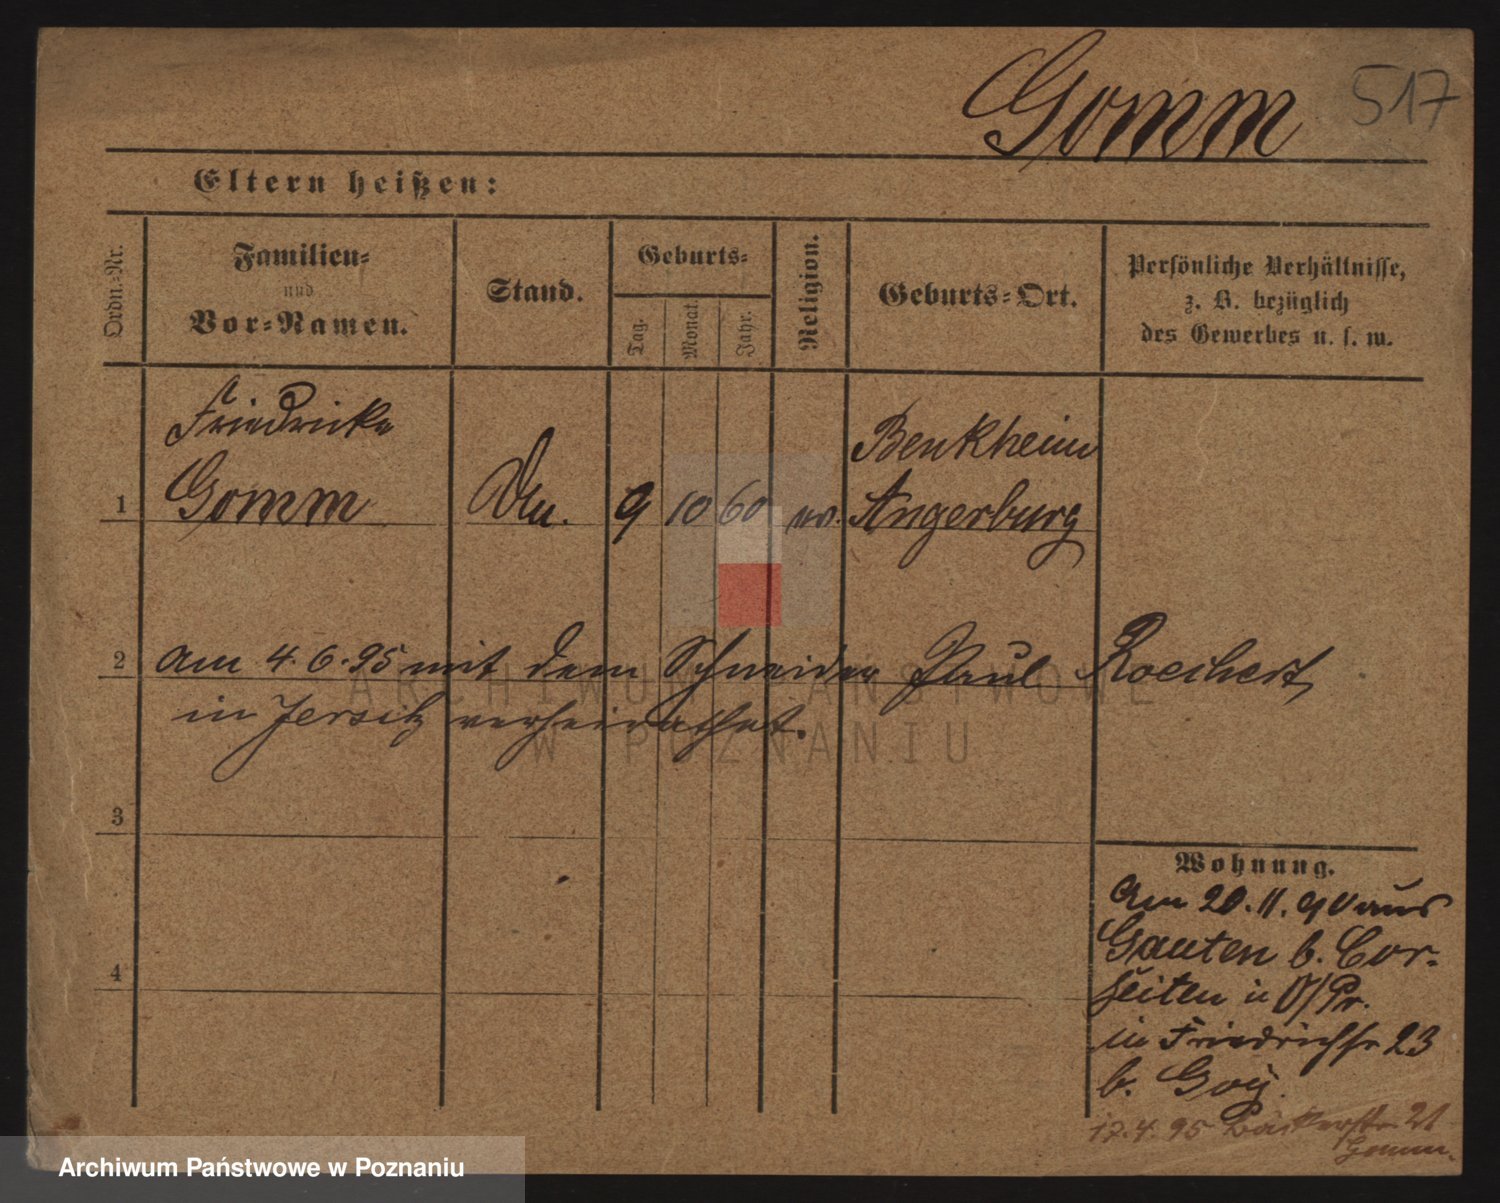 Gomm 517
Eltern heißen:
Ordn.-Nr.
Familien-
und
Vor-Namen.
Stand.
Geburts-
Tag.
Monat.
Jahr.
Religion.
Geburts-Ort.
Persönliche Verhältnisse,
z. B. bezüglich
des Gewerbes u. s. w.
Friedricke
Benkheim
1 Gomm 9 10 60 Angerburg
2 am 4.6.95 mit dem Schneider Paul Roeihert
in Jersitz verheirathet.
3
4
Wohnung.
Am 20.11.90 aus
Gauten b. Cor-
jeiten in O/Pr.
in Friedrichstr 23
b. Goy.
17.4.95 Bäckerstr. 21
Gomm.
ARCHIWUM PAŃSTWOWE
W POZNANIU
Archiwum Państwowe w Poznaniu